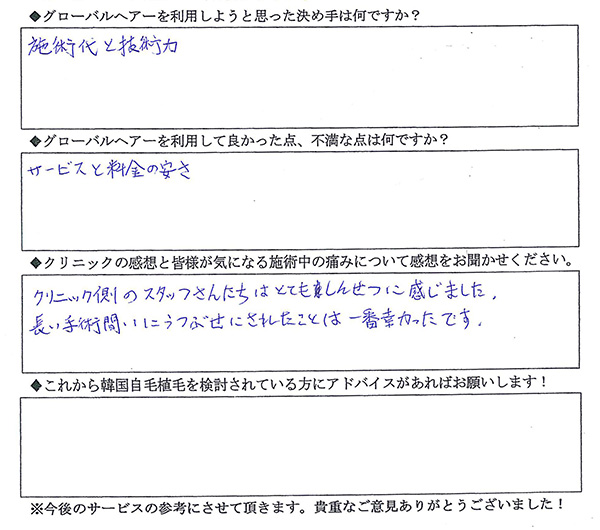 ◆グローバルヘアーを利用しようと思った決め手は何ですか?
施術代と技術力
◆グローバルヘアーを利用して良かった点、不満な点は何ですか?
サービスと料金の安さ
◆クリニックの感想と皆様が気になる施術中の痛みについて感想をお聞かせください。
クリニック側のスタッフさんたちはとても親しんせつに感じました。
長い手術間いにうつぶせにされたことは一番幸かったです。
◆これから韓国自毛植毛を検討されている方にアドバイスがあればお願いします!
※今後のサービスの参考にさせて頂きます。貴重なご意見ありがとうございました!